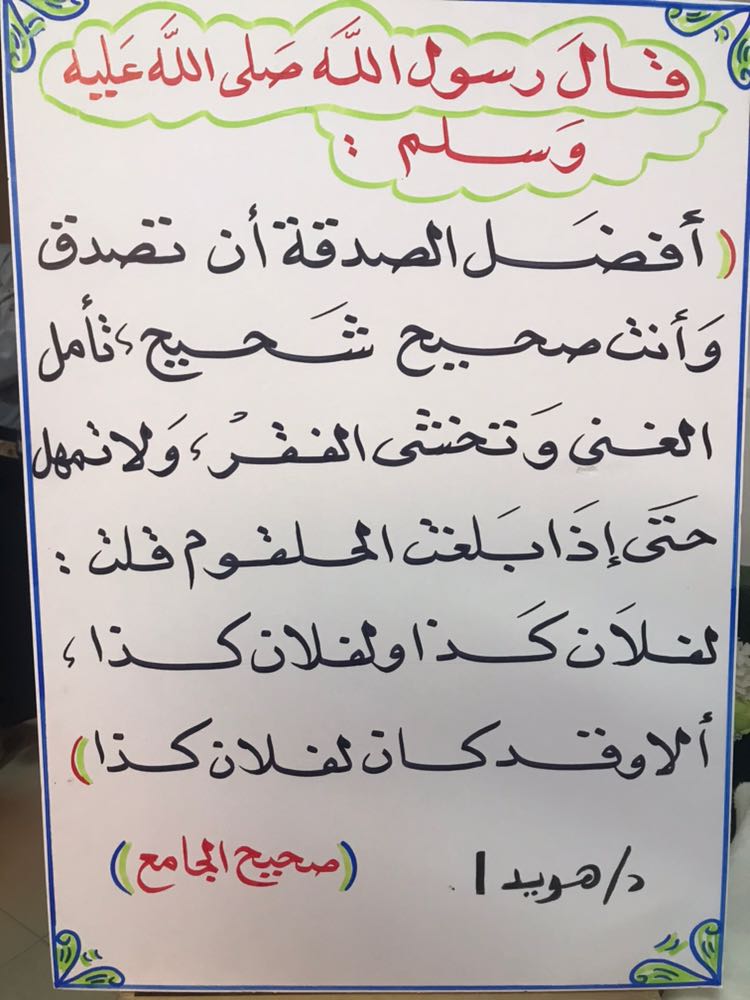 قَالَ رسول اللَّه صَلى اللَّه عَليه
وَسلم :
( أفضَل الصدقة أن تصدق
وَأنت صحيح شَحيح، تأمل
الغنى وَتخشى الفقرْ، وَلا تمهل
حتَى إذَا بَلغت الحلقوم قلت :
لفلاَن كَذا ولفلان كذا،
ألا وقد كان لفلان كذا )
د/هويدا (صحيح الجامع)